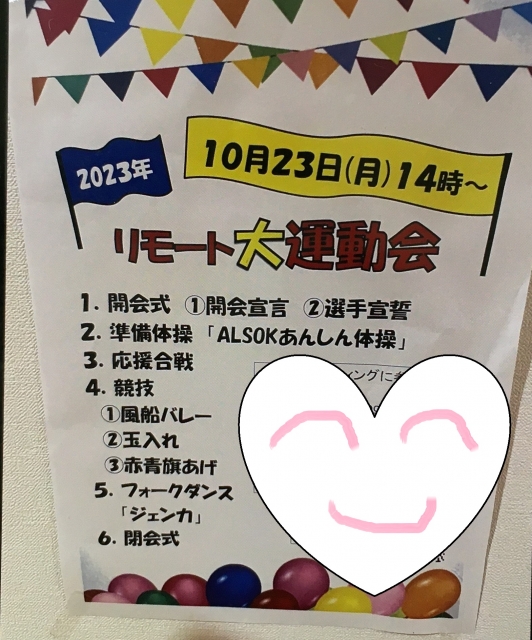 2023年
10月23日(月)14時～
リモート大運動会
1. 開会式 ①開会宣言 ②選手宣誓
2. 準備体操 「ALSOKあんしん体操」
3. 応援合戦
4. 競技
①風船バレー
②玉入れ
③赤青旗あげ
5. フォークダンス
「ジェンカ」
6. 閉会式